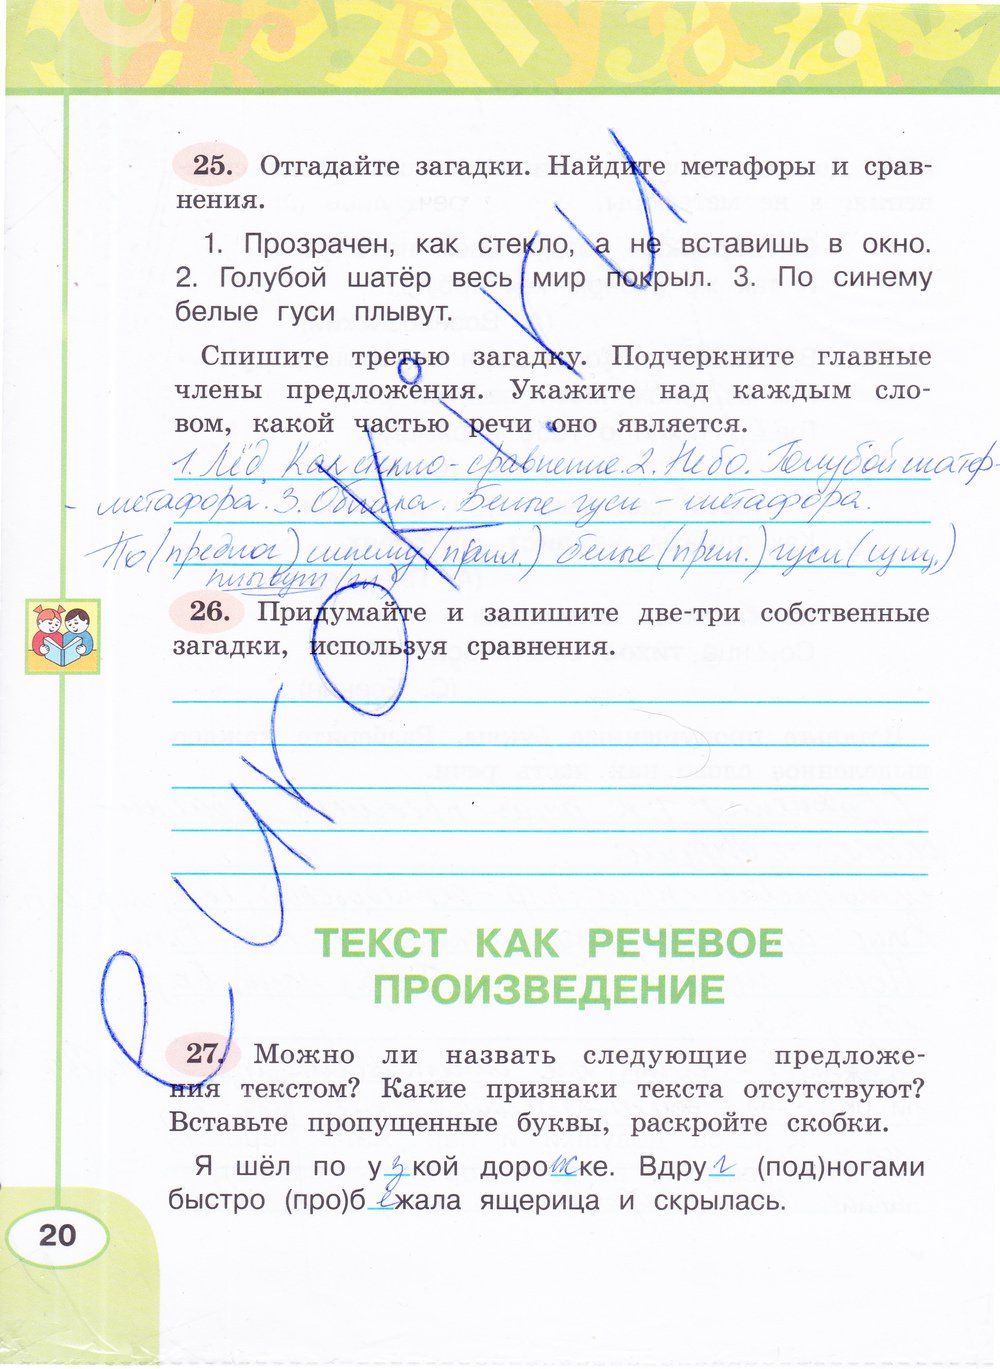 25. Отгадайте загадки. Найдите метафоры и срав-
нения.
1. Прозрачен, как стекло, а не вставишь в окно.
2. Голубой шатёр весь мир покрыл. 3. По синему
белые гуси плывут.
Спишите третью загадку. Подчеркните главные
члены предложения. Укажите над каждым сло-
вом, какой частью речи оно является.
1. Лёд. Как стекло - сравнение. 2. Небо. Голубой шатёр-
- метафора. 3. Облака. Белые гуси - метафора.
По (предлог) синему (прил.) белые (прил.) гуси (сущ.)
плывут (гл.)
26. Придумайте и запишите две-три собственные
загадки, используя сравнения.
ТЕКСТ КАК РЕЧЕВОЕ
ПРОИЗВЕДЕНИЕ
27. Можно ли назвать следующие предложе-
ния текстом? Какие признаки текста отсутствуют?
Вставьте пропущенные буквы, раскройте скобки.
Я шёл по узкой дорожке. Вдруг (под)ногами
быстро (про)бежала ящерица и скрылась.
20